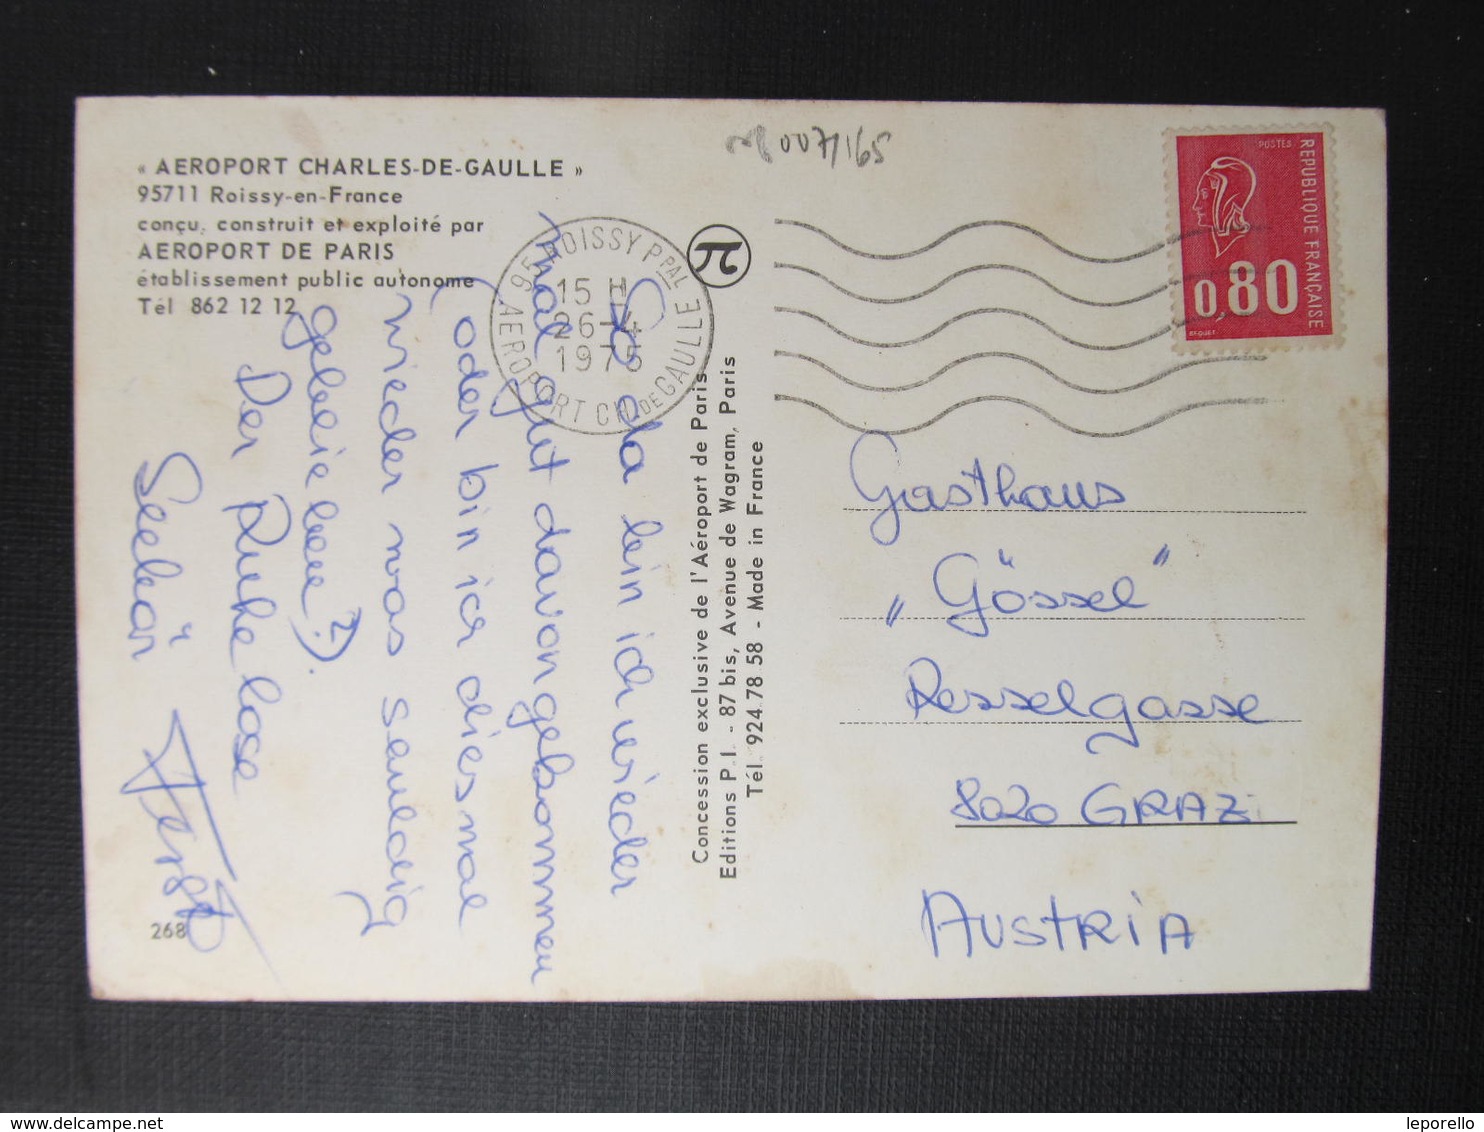 « AEROPORT CHARLES-DE-GAULLE »
95711 Roissy-en-France
conçu, construit et exploité par
AEROPORT DE PARIS
établissement public autonome
Tél 862 12 12
95 ROISSY PPAL
15 H
26-4
1975
AEROPORT CH. DE GAULLE
REPUBLIQUE FRANÇAISE
POSTES
0,80
BEQUET
So da bin ich wieder
mal gut davongekommen
(oder bin ich diesmal
wieder was schuldig
geblieben?).
Der Ruhelose
268
Concession exclusive de l'Aéroport de Paris
Editions P.I. - 87 bis, Avenue de Wagram, Paris
Tél. 924.78 58 - Made in France
Gasthaus
„Gössel"
Resselgasse
8020 GRAZ
AUSTRIA
www.delcampe.net
leporello